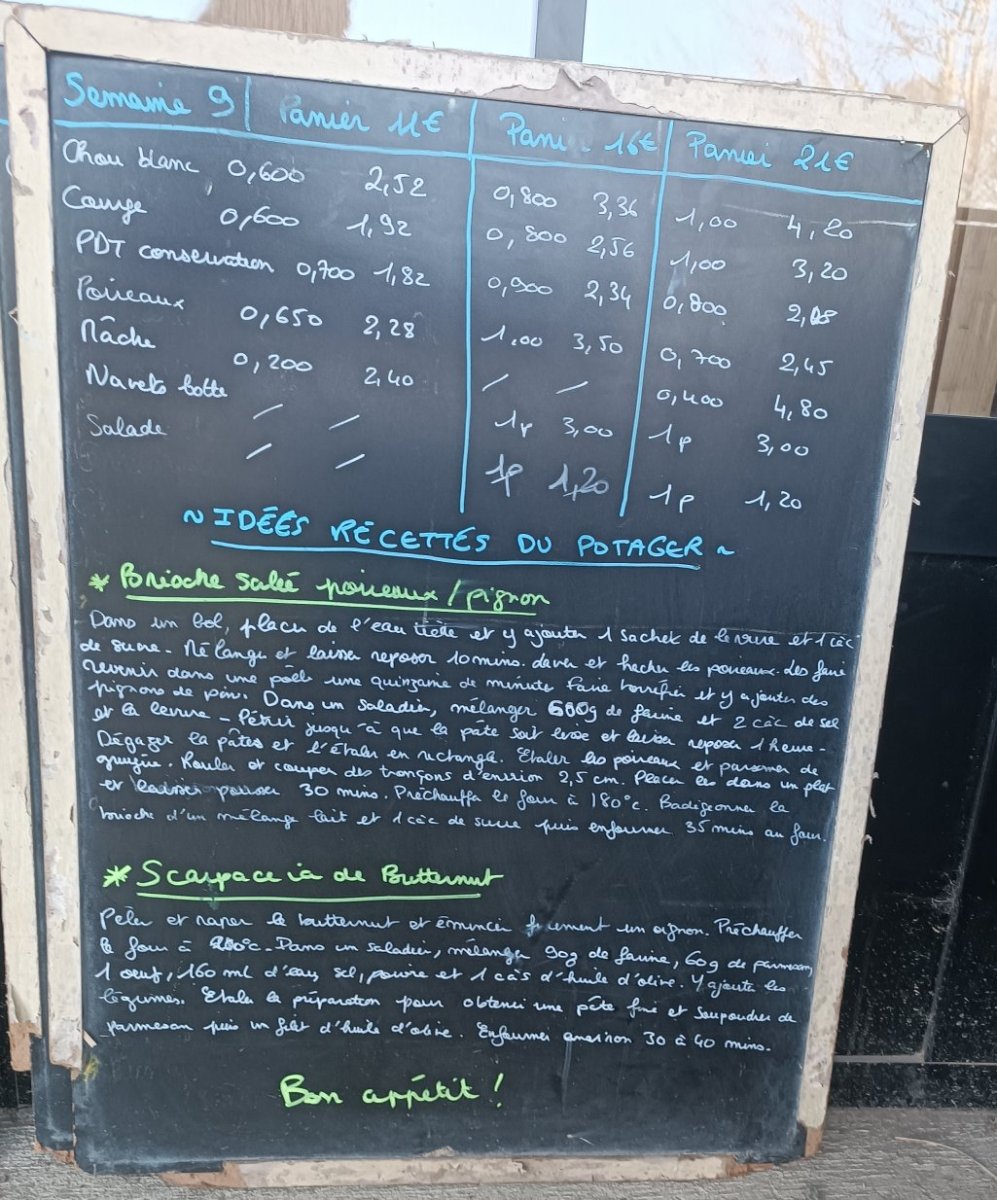 Semaine 9 | Panier 11€ Pani 16€ Panier 21€
Chou blanc 0,600 2,52 0,800 3,36 1,00 4,20
Courge 0,600 1,92 0,800 2,56 1,00 3,20
PDT conservation 0,700 1,82 0,900 2,34 0,800 2,08
Poireaux 0,650 2,28 1,00 3,50 0,700 2,45
Mâche 0,200 2,40 / / 0,400 4,80
Navets botte / / 1p 3,00 1p 3,00
Salade / / 1p 1,20 1p 1,20
~ IDÉES RECETTES DU POTAGER ~
* Brioche salée poireaux/pignon
Dans un bol, placer de l'eau tiède et y ajouter 1 sachet de levure et 1 càc
de sucre. Mélanger et laisser reposer 10 mins. Laver et hacher les poireaux. Les faire
revenir dans une poêle une quinzaine de minutes faire torréfier et y ajouter des
pignons de pin. Dans un saladier, mélanger 600g de farine et 2 càc de sel
et la levure - Pétrir jusqu'à que la pâte soit lisse et laisser reposer 1 heure.
Dégazer la pâtes et l'étaler en rectangle. Etaler les poireaux et parsemer de
gruyère. Rouler et couper des tronçons d'environ 2,5 cm. Placer les dans un plat
et laisser pousser 30 mins. Préchauffer le four à 180°c. Badigeonner la
brioche d'un mélange lait et 1 càc de sucre puis enfourner 35 mins au four.
* Scarpaccia de Butternut
Peler et raper le butternut et émincer finement un oignon. Préchauffer
le four à 200°c. Dans un saladier, mélanger 90g de farine, 60g de parmesan,
1 oeuf, 160 ml d'eau, sel, poivre et 1 càs d'huile d'olive. Y ajouter les
légumes. Etaler la préparation pour obtenir une pâte fine et saupoudrer de
parmesan puis un filet d'huile d'olive. Enfourner environ 30 à 40 mins.
Bon appétit !